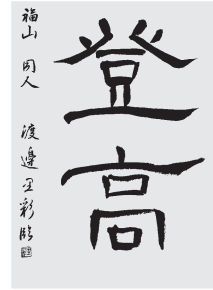 登高
福山 同人 渡邊星彩臨